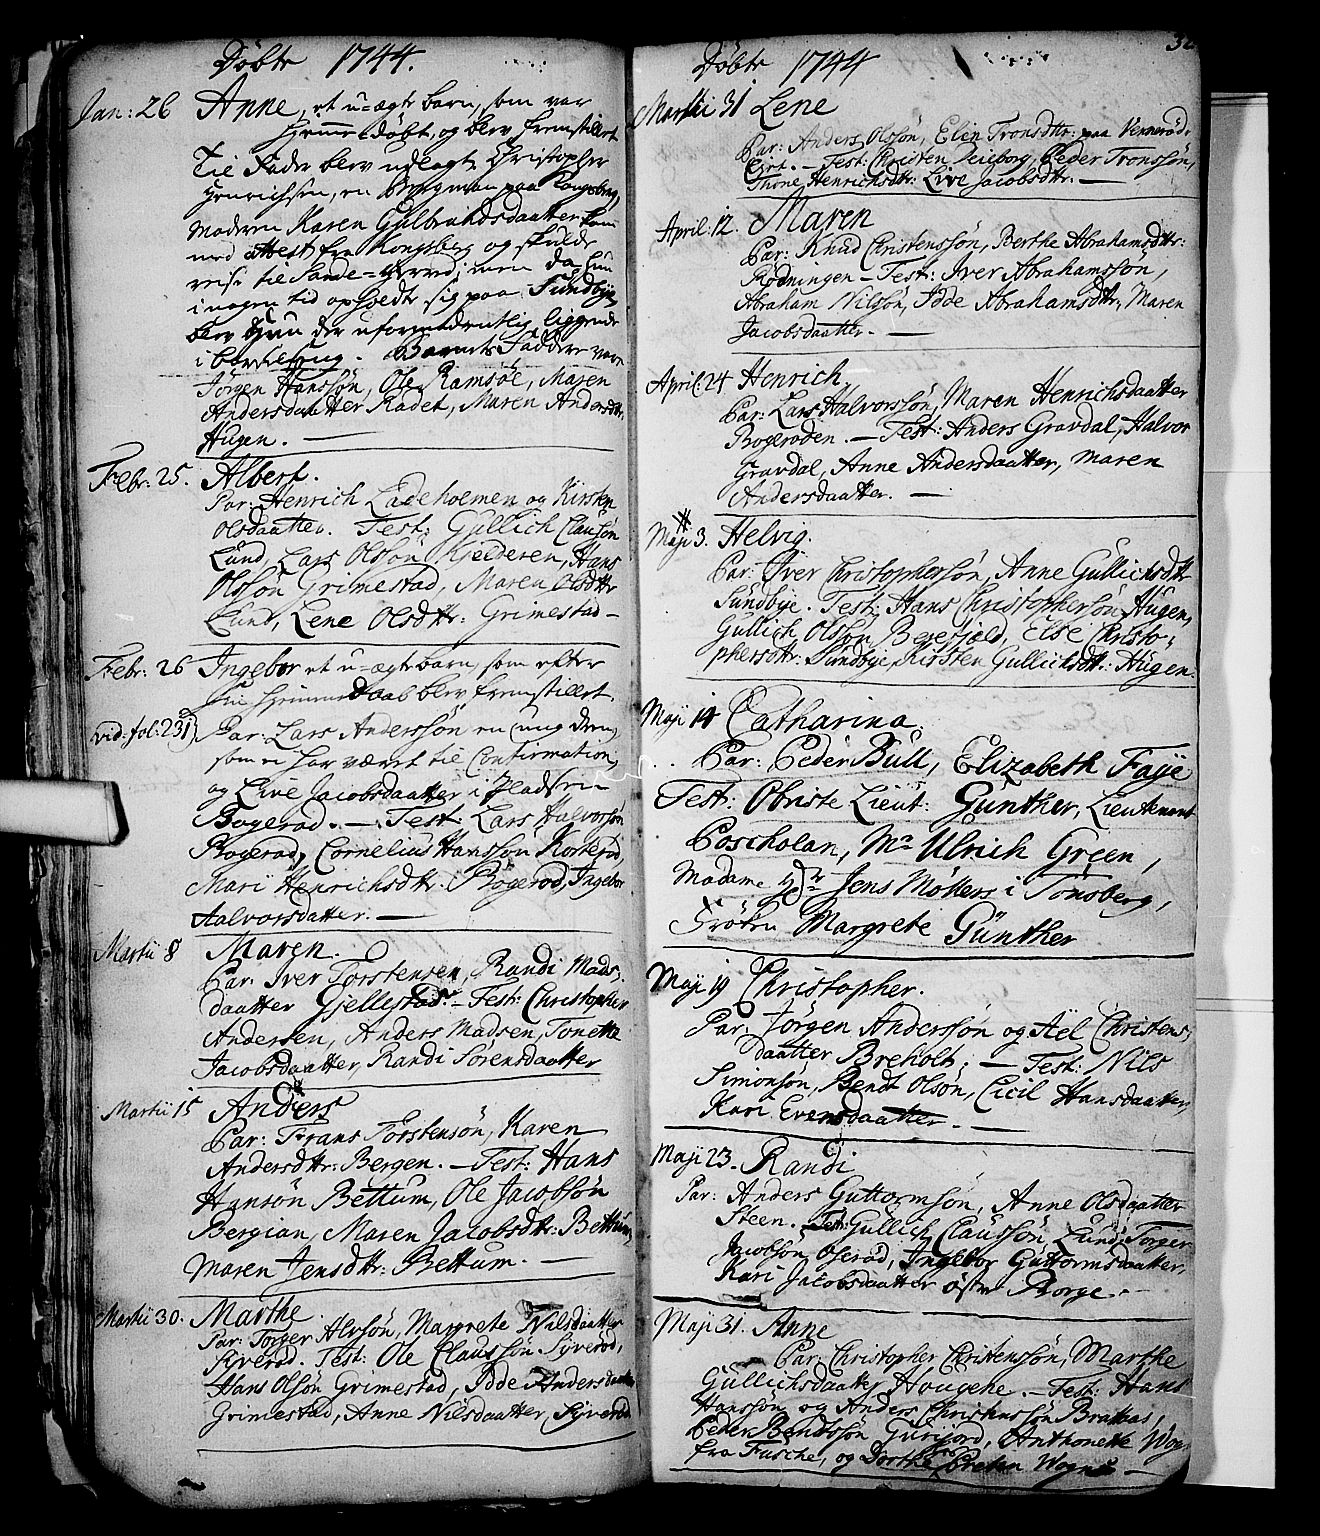 Döbte 1744.
Jan: 26 Anne, et u-ægte barn, som var
hiemme döbt, og blev fremstillet
Til Fader blev udlagt Christopher
Henrichsen, en Bergman paa Kongsberg,
Moderen Karen Gulbrandsdaatter kom
med attest fra Kongsberg og skulde
reise til Sande-Herred; men da hun
i nogen tid opholdt sig paa Sundbye,
blev hun der uformodentlig liggende
i barselseng. Barnets Faddere vare
Jörgen Hanssön, Ole Ramsöe, Maren
Andersdaatter Radet, Maren Andersdtr:
Hugen.
Febr: 25. Albert.
Par: Henrich Ladeholmen og Kirsten
Olsdaatter. Test: Gullich Claussön
Lund, Lars Olssön Kjelderen, Hans
Olssön Grimestad, Maren Olsdttr
Lund, Lene Olsdttr: Grimestad
Febr: 26 Ingebor et u-ægte barn, som efter
sin hjemmedaab blev fremstillet.
vid: fol: 231) Par: Lars Anderssön en ung dreng
som ei har været til Confirmation,
og Live Jacobsdaatter i Pladsen
Bogerød. - Test Lars Halvorssön
Bogerød, Cornelius Hanssön Korterød,
Mari Henrichsdttr. Bogerod, Ingebor
Halvorsdatter.
Martii 8 Maren.
Par: Iver Torstensen, Randi Mads-
daatter Gjellestad. - Test: Christopher
Andersen, Anders Madsen, Tonette
Jacobsdaatter, Randi Sörensdaatter
Martii 15 Anders
Par: Frans Torstensön, Karen
Andersdttr: Bergen. - Test: Hans
Hansön Bettum, Ole Jacobsön
Bergian, Maren Jacobsdttr: Bettum,
Maren Jensdttr: Bettum.
Martii 30. Marthe
Par: Torger Alfsön, Margrete Nilsdaatter
Syverød. Test: Ole Claussön Syverød,
Hans Olsön Grimestad, Idde Andersdaatter
Grimestad, Anne Nilsdaatter, Syverød
Döbte 1744
Martii 31 Lene
Par: Anders Olssön, Elin Tronsdttr: paa Vennerød
Eiet. - Test: Christen Leieborg, Peder Tronssön,
Thone Henrichsdttr: Live Jacobsdttr.
April: 12. Maren
Par: Knud Christenssön, Berthe Abrahamsdttr:
Rödningen - Test: Iver Abrahamssön,
Abraham Nilsön, Idde Abrahamsdttr, Maren
Jacobsdaatter.
April: 24 Henrich
Par: Lars Halvorssön, Maren Henrichsdaatter
Bogeroden. - Test: Anders Gravdal, Halvor
Gravdal, Anne Andersdaatter, Maren
Andersdaatter.
Maji 3. Helvig.
Par: Iver Christophersön, Anne Gullichsdttr
Sundbye. Test: Hans Christophersön Hugen,
Gullich Olssön Begefjeld, Else Christo-
phersdttr: Sundbye, Kirsten Gullichsdttr: Hugen.
Maji 14 Catharina.
Par: Peder Bull, Elizabeth Faye
Test: Obriste Lieut: Günther, Lieutenant
Poscholan, Mr Ulrich Green,
Madame Hr Jens Möllers i Tönsberg,
Fröken Margrete Günther
Maji 19 Christopher.
Par. Jörgen Anderssön og Ael Christens-
daatter Breholt; - Test: Nils
Simonsön, Bendt Olsön, Cicil Hansdaatter,
Kari Evensdaatter.
Maji 23. Randi
Par: Anders Guttormsön, Anne Olsdaatter
Steen. Test: Gullich Claussön Lund, Torger
Jacobsön Oserød, Ingebor Guttormsdaatter,
Kari Jacobsdaatter östre Borge.
Maji 31. Anne
Par: Christopher Christenssön, Marthe
Gullichsdaatter Hougene. - Test: Hans
Hanssön og Anders Christenssön Brattas,
Peder Bendtssön Gurijord, Anthonette
fra Fusche, og Dorthe